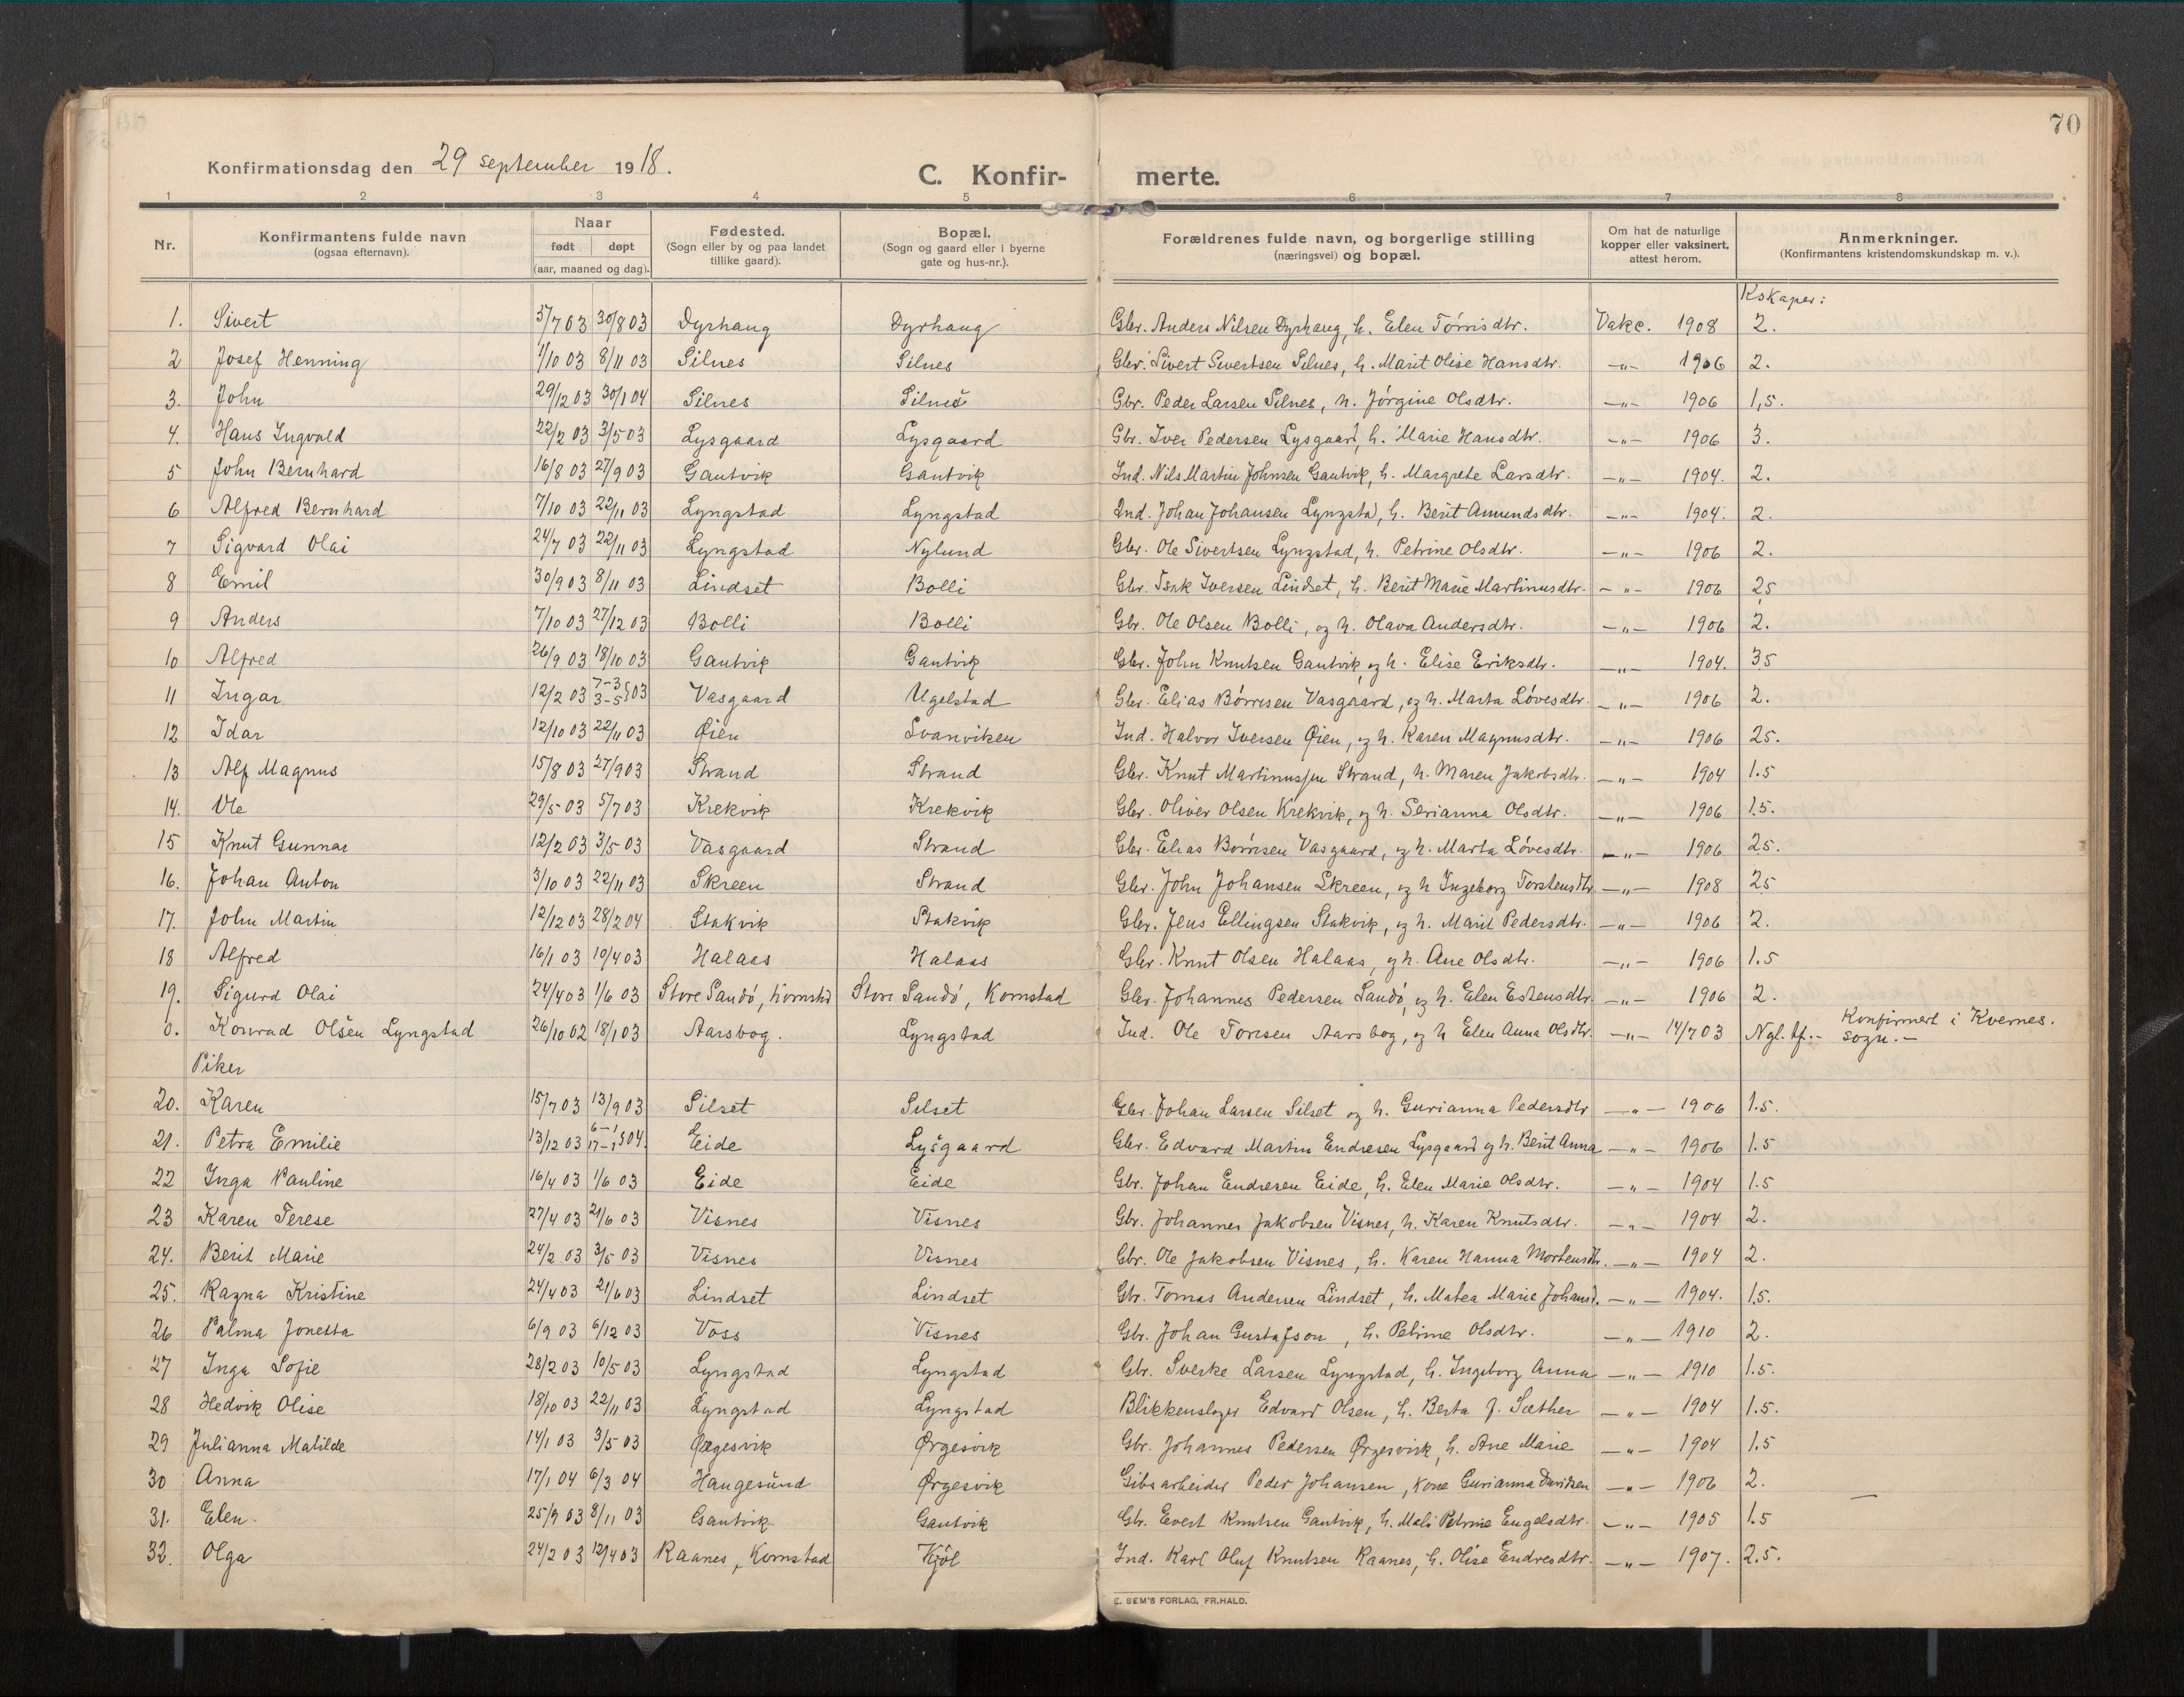 70
Konfirmationsdag den 29 september 1918.
C. Konfir- merte.
1 2 3 4 5 6 7 8
Nr. | Konfirmantens fulde navn (ogsaa efternavn). | Naar født døpt (aar, maaned og dag). | Fødested. (Sogn eller by og paa landet tillike gaard). | Bopæl. (Sogn og gaard eller i byerne gate og hus-nr.). | Forældrenes fulde navn, og borgerlige stilling (næringsvei) og bopæl. | Om hat de naturlige kopper eller vaksinert, attest herom. | Anmerkninger. (Konfirmantens kristendomskundskap m. v.).
Kskaper:
1. Sivert 5/7 03 30/8 03 Dyrhaug Dyrhaug Gbr. Anders Nilsen Dyrhaug, h. Elen Tørrisdtr. Vakc. 1908 2.
2 Josef Henning 1/10 03 8/11 03 Silnes Silnes Gbr. Sivert Sivertsen Silnes, h. Marit Olise Hansdtr. —"— 1906 2.
3. John 29/12 03 30/1 04 Silnes Silnes Gbr. Peder Larsen Silnes, h. Jørgine Olsdtr. —"— 1906 1,5.
4. Hans Ingvald 22/2 03 3/5 03 Lysgaard Lysgaard Gbr. Iver Pedersen Lysgaard, h. Marie Hansdtr. —"— 1906 3.
5 John Bernhard 16/8 03 27/9 03 Gautvik Gautvik Ind. Nils Martin Johnsen Gautvik, h. Margrete Larsdtr. —"— 1904. 2.
6 Alfred Bernhard 7/10 03 22/11 03 Lyngstad Lyngstad Ind. Johan Johansen Lyngsta, h. Berit Amundsdtr. —"— 1904. 2.
7 Sigvard Olai 24/7 03 22/11 03 Lyngstad Nylund Gbr. Ole Sivertsen Lyngstad, h. Petrine Olsdtr. —"— 1906 2.
8 Emil 30/9 03 8/11 03 Lindset Bolli Gbr. Isak Iversen Lindset, h. Berit Marie Martinusdtr. —"— 1906 2,5
9 Anders 7/10 03 27/12 03 Bolli Bolli Gbr. Ole Olsen Bolli, og h. Olava Andersdtr. —"— 1906 2.
10 Alfred 26/9 03 18/10 03 Gautvik Gautvik Gbr. John Knutsen Gautvik og h. Elise Eriksdtr. —"— 1904. 3,5
11 Ingar 12/2 03 7-3 3-5 } 03 Vasgaard Ugelstad Gbr. Elias Børresen Vasgaard, og h. Marta Løvesdtr. —"— 1906 2.
12 Idar 12/10 03 22/11 03 Øien Svanviken Ind. Halvor Iversen Øien, og h. Karen Magnusdtr. —"— 1906 2,5.
13 Alf Magnus 15/8 03 27/9 03 Strand Strand Gbr. Knut Martinussen Strand, h. Maren Jakobsdtr. —"— 1904 1.5
14. Ole 29/5 03 5/7 03 Krekvik Krekvik Gbr. Oliver Olsen Krekvik, og h. Serianna Olsdtr. —"— 1906 1.5.
15 Knut Gunnar 12/2 03 3/5 03 Vasgaard Strand Gbr. Elias Børresen Vasgaard, og h. Marta Løvesdtr. —"— 1906 2.5.
16. Johan Anton 3/10 03 22/11 03 Skreen Strand Gbr. John Johansen Skreen, og h Ingeborg Torstensdtr —"— 1908 2.5
17. John Martin 12/12 03 28/2 04 Stakvik Stakvik Gbr. Jens Ellingsen Stakvik, og h. Marit Pedersdtr. —"— 1906 2.
18 Alfred 16/1 03 10/4 03 Halaas Halaas Gbr. Knut Olsen Halaas, og h. Ane Olsdtr. —"— 1906 1.5
19. Sigurd Olai 24/4 03 1/6 03 Store Sandø, Kornstad Store Sandø, Kornstad Gbr. Johannes Pedersen Sandø, og h. Elen Estensdtr. —"— 1906 2.
0. Konrad Olsen Lyngstad 26/10 02 18/1 03 Aarsbog. Lyngstad Ind. Ole Toresen Aarsbog, og h Elen Anna Olsdtr. —"— 14/7 03 Ngl. tf.- Konfirmert i Kvernes. sogn.—
Piker
20. Karen 15/7 03 13/9 03 Silset Silset Gbr. Johan Larsen Silset og h. Gurianna Pedersdtr —"— 1906 1.5.
21. Petra Emilie 13/12 03 6-1 17-1 } 04. Eide Lysgaard Gbr. Edvard Martin Endresen Lysgaard og h. Berit Anna —"— 1906 1.5
22 Inga Pauline 16/4 03 1/6 03 Eide Eide Gbr. Johan Endresen Eide, h. Elen Marie Olsdtr. —"— 1904 1.5
23 Karen Terese 27/4 03 21/6 03 Visnes Visnes Gbr. Johannes Jakobsen Visnes, h. Karen Knutsdtr. —"— 1904 2.
24. Berit Marie 24/2 03 3/5 03 Visnes Visnes Gbr. Ole Jakobsen Visnes, h. Karen Hanna Mortensdtr. —"— 1904 2.
25. Ragna Kristine 24/4 03 21/6 03 Lindset Lindset Gbr. Tomas Andersen Lindset, h. Matea Marie Johansd. —"— 1904. 1.5.
26 Palma Jonetta 6/9 03 6/12 03 Voss Visnes Gbr. Johan Gustafson, h. Petrine Olsdtr. —"— 1910 2.
27 Inga Sofie 28/2 03 10/5 03 Lyngstad Lyngstad Gbr. Sverke Larsen Lyngstad, h. Ingeborg Anna —"— 1910 1.5.
28 Hedvik Olise 18/10 03 22/11 03 Lyngstad Lyngstad Blikkenslager Edvard Olsen, h. Berta J. Sæther —"— 1904 1.5.
29 Julianna Matilde 14/1 03 3/5 03 Ørgesvik Ørgesvik Gbr. Johannes Pedersen Ørgesvik, h. Ane Marie —"— 1904 1.5
30 Anna 17/1 04 6/3 04 Haugesund Ørgesvik Gibsarbeider Peder Johansen, kone Gurianna Davidsen —"— 1906 2. —
31. Elen 25/9 03 8/11 03 Gautvik Gautvik Gbr. Evert Knutsen Gautvik, h. Mali Petrine Engelsdtr. —"— 1905 1.5
32. Olga 24/2 03 12/4 03 Raanes, Kornstad Kjøl Ind. Karl Oluf Knutsen Raanes, h. Olise Endresdtr. —"— 1907. 2.5.
E. SEM'S FORLAG, FR.HALD.